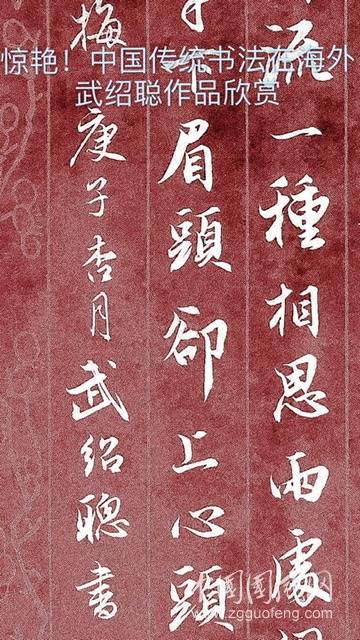 惊艳！中国传统书法在海外
武绍聪作品欣赏
流一種相思兩處
眉頭卻上心頭
梅 庚子杏月武绍聰書
www.zgguofeng.com